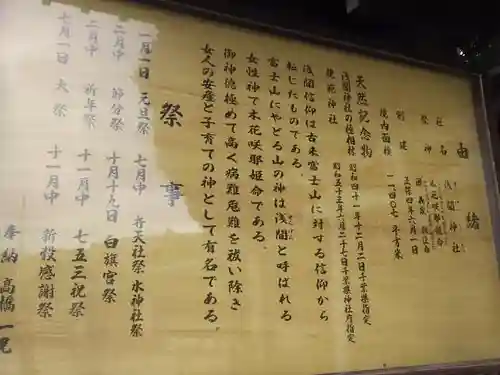 由緒
社名 浅間神社
祭神 木花咲耶姫命
創建 正保四年六月一日
境内面積 一、四〇七平方米
天然記念物
浅間神社の極相林 昭和四十一年十二月二日千葉県指定
規範神社 昭和五十三年六月二十七日千葉県神社庁指定
浅間信仰は古来富士山に対する信仰から
転じたものである。
富士山にやどる山の神は浅間と呼ばれる
女性神で木花咲耶姫命である。
御神徳極めて高く病難危難を祓い除き
女人の安産と子育ての神として有名である。
祭事
一月一日 元旦祭
二月中 節分祭
二月中 祈年祭
七月一日 大祭
七月中 弁天社祭 水神社祭
十月十九日 白旗宮祭
十一月中 七五三祝祭
十一月中 新穀感謝祭
奉納 高橋一